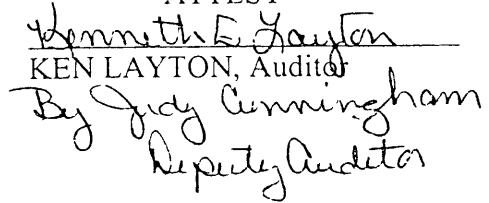 ATTEST
Kenneth E Layton
KEN LAYTON, Auditor
By Judy Cunningham
Deputy Auditor